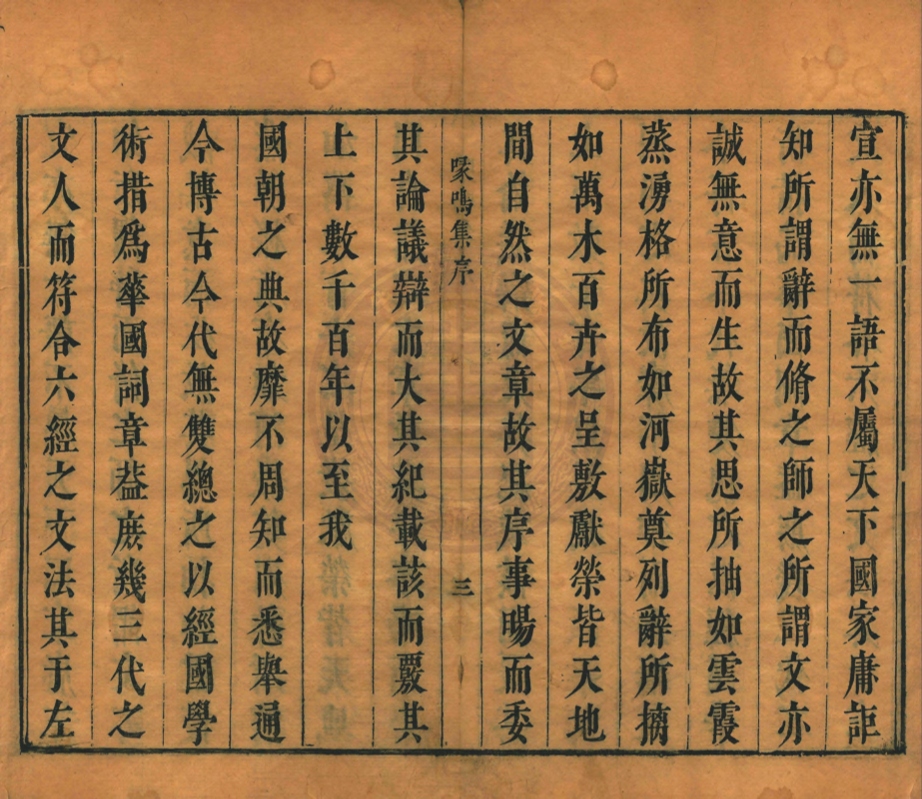 宣亦無一語不屬天下國家庸詎
知所謂辭而脩之師之所謂文亦
誠無意而生故其思所抽如雲霞
蒸湧格所布如河嶽奠列辭所摛
如萬木百卉之呈敷獻榮皆天地
間自然之文章故其序事暘而委
喙鳴集序
三
其論議辯而大其紀載該而覈其
上下數千百年以至我
國朝之典故靡不周知而悉舉通
今博古今代無雙總之以經國學
術措爲華國詞章葢庶幾三代之
文人而符合六經之文法其于左